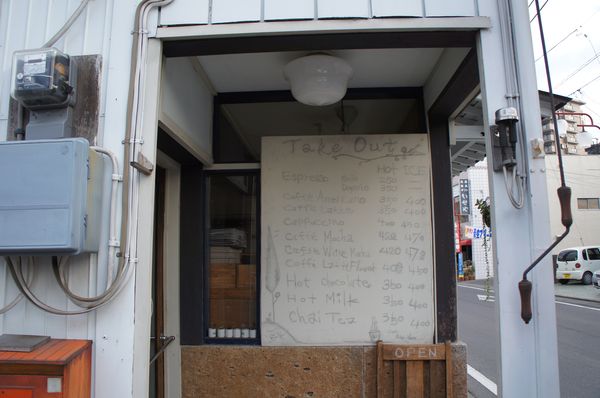 Take Out
HOT ICE
Espresso Solo 250 —
Doppio 350 —
Caffe Americano 350 400
Caffe Latte 350 400
Cappuccino 400 450
Caffe Mocha 420 470
Caffe White Mocha 420 470
Caffe Latte Flavor 400 450
Hot Chocolate 350 400
Hot Milk 350 400
Chai Tea 350 400
OPEN